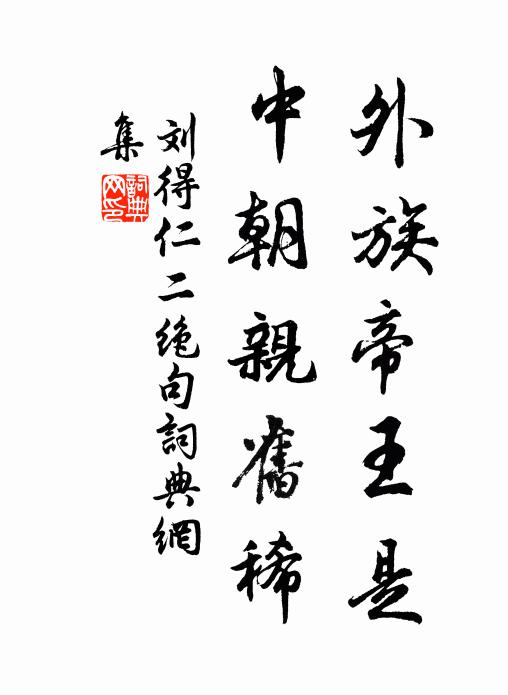 外族帝王是
中朝親舊稀
刘得仁二绝句詞典網
集
詞典網印